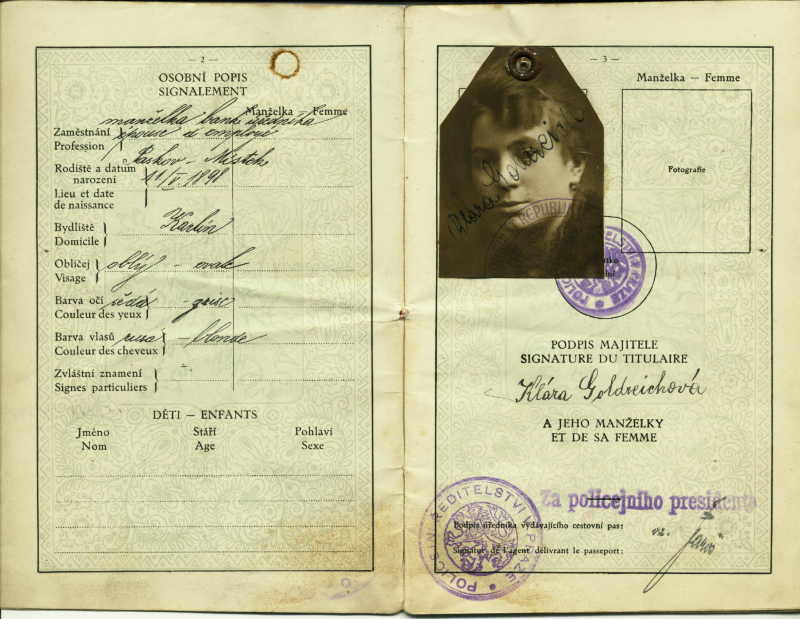 — 2 —
OSOBNÍ POPIS
SIGNALEMENT
Manželka — Femme
manželka bank. úředníka
Zaměstnání
Profession
épouse d employé
Rodiště a datum narození
Paskov - Místek
11/V. 1898
Lieu et date de naissance
Bydliště
Domicile
Karlín
Obličej
Visage
oblý - ovale
Barva očí
Couleur des yeux
šedá - grise
Barva vlasů
Couleur des cheveux
rusá - blonde
Zvláštní znamení
Signes particuliers
DĚTI — ENFANTS
Jméno Stáří Pohlaví
Nom Age Sexe
— 3 —
Manželka — Femme
Fotografie
Klára Goldreichová
REPUBLIKA
POLICEJNÍ ŘEDITELSTVÍ V PRAZE
PODPIS MAJITELE
SIGNATURE DU TITULAIRE
Klára Goldreichová
A JEHO MANŽELKY
ET DE SA FEMME
Za policejního presidenta
Podpis úředníka vydávajícího cestovní pas:
Signature de l'agent délivrant le passeport:
POLICEJNÍ ŘEDITELSTVÍ V PRAZE